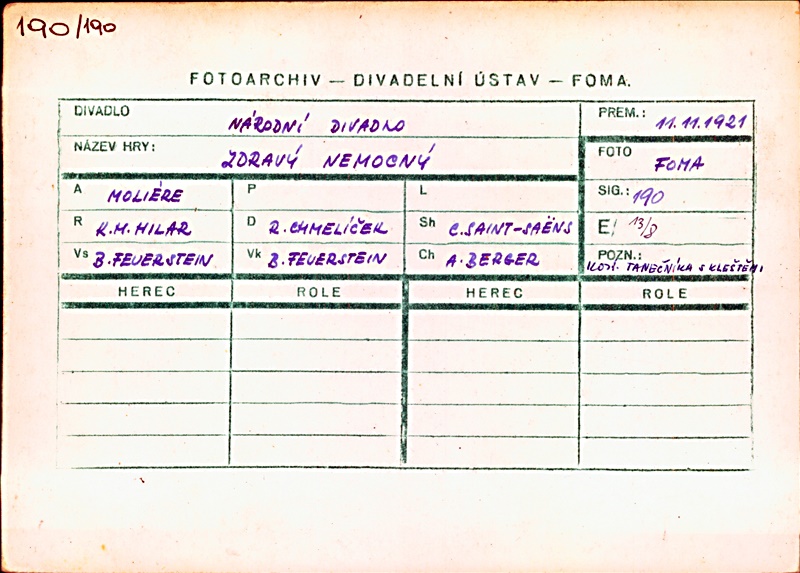 190/190
FOTOARCHIV — DIVADELNÍ ÚSTAV — FOMA.
DIVADLO NÁRODNÍ DIVADLO
PREM.: 11.11.1921
NÁZEV HRY: ZDRAVÝ NEMOCNÝ
FOTO FOMA
A MOLIÉRE P L
SIG.: 190
R K.M. HILAR D R. CHMELÍČEK Sh C. SAINT-SAËNS
E/ 13/8
Vs B. FEUERSTEIN Vk B. FEUERSTEIN Ch A. BERGER
POZN.: KOST. TANEČNÍKA S KLEŠTĚMI
HEREC ROLE HEREC ROLE